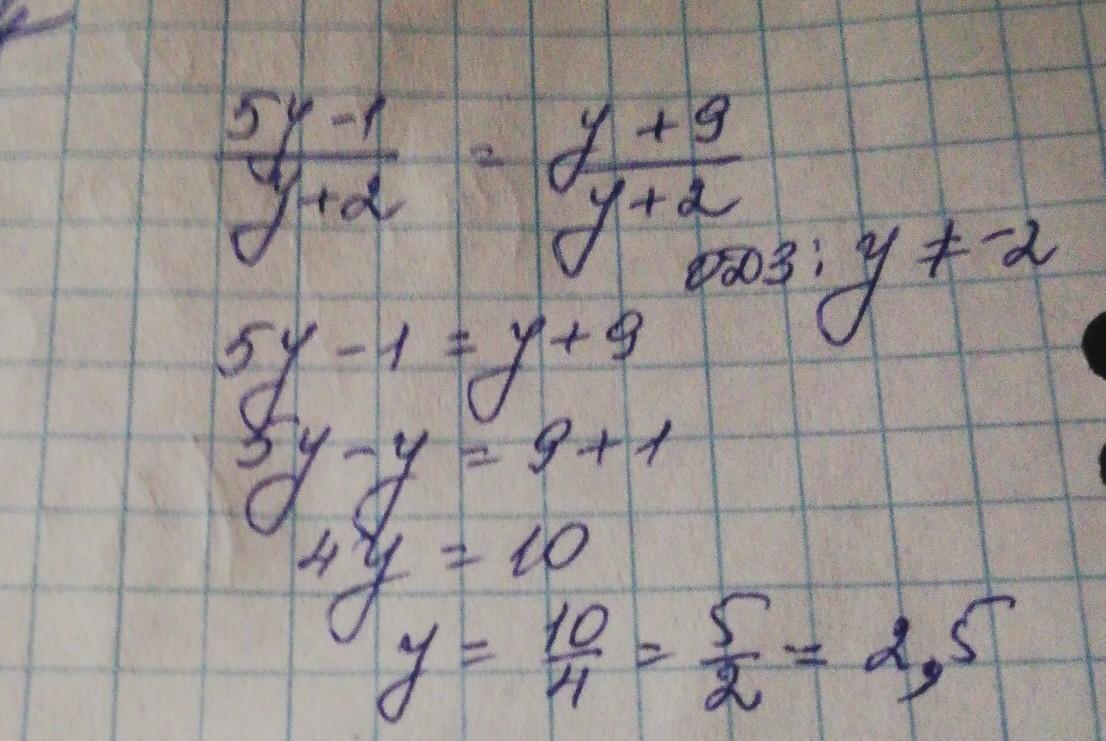 5y-1/y+2 = y+9/y+2
ОДЗ: y ≠ -2
5y-1 = y+9
5y-y = 9+1
4y = 10
y = 10/4 = 5/2 = 2,5